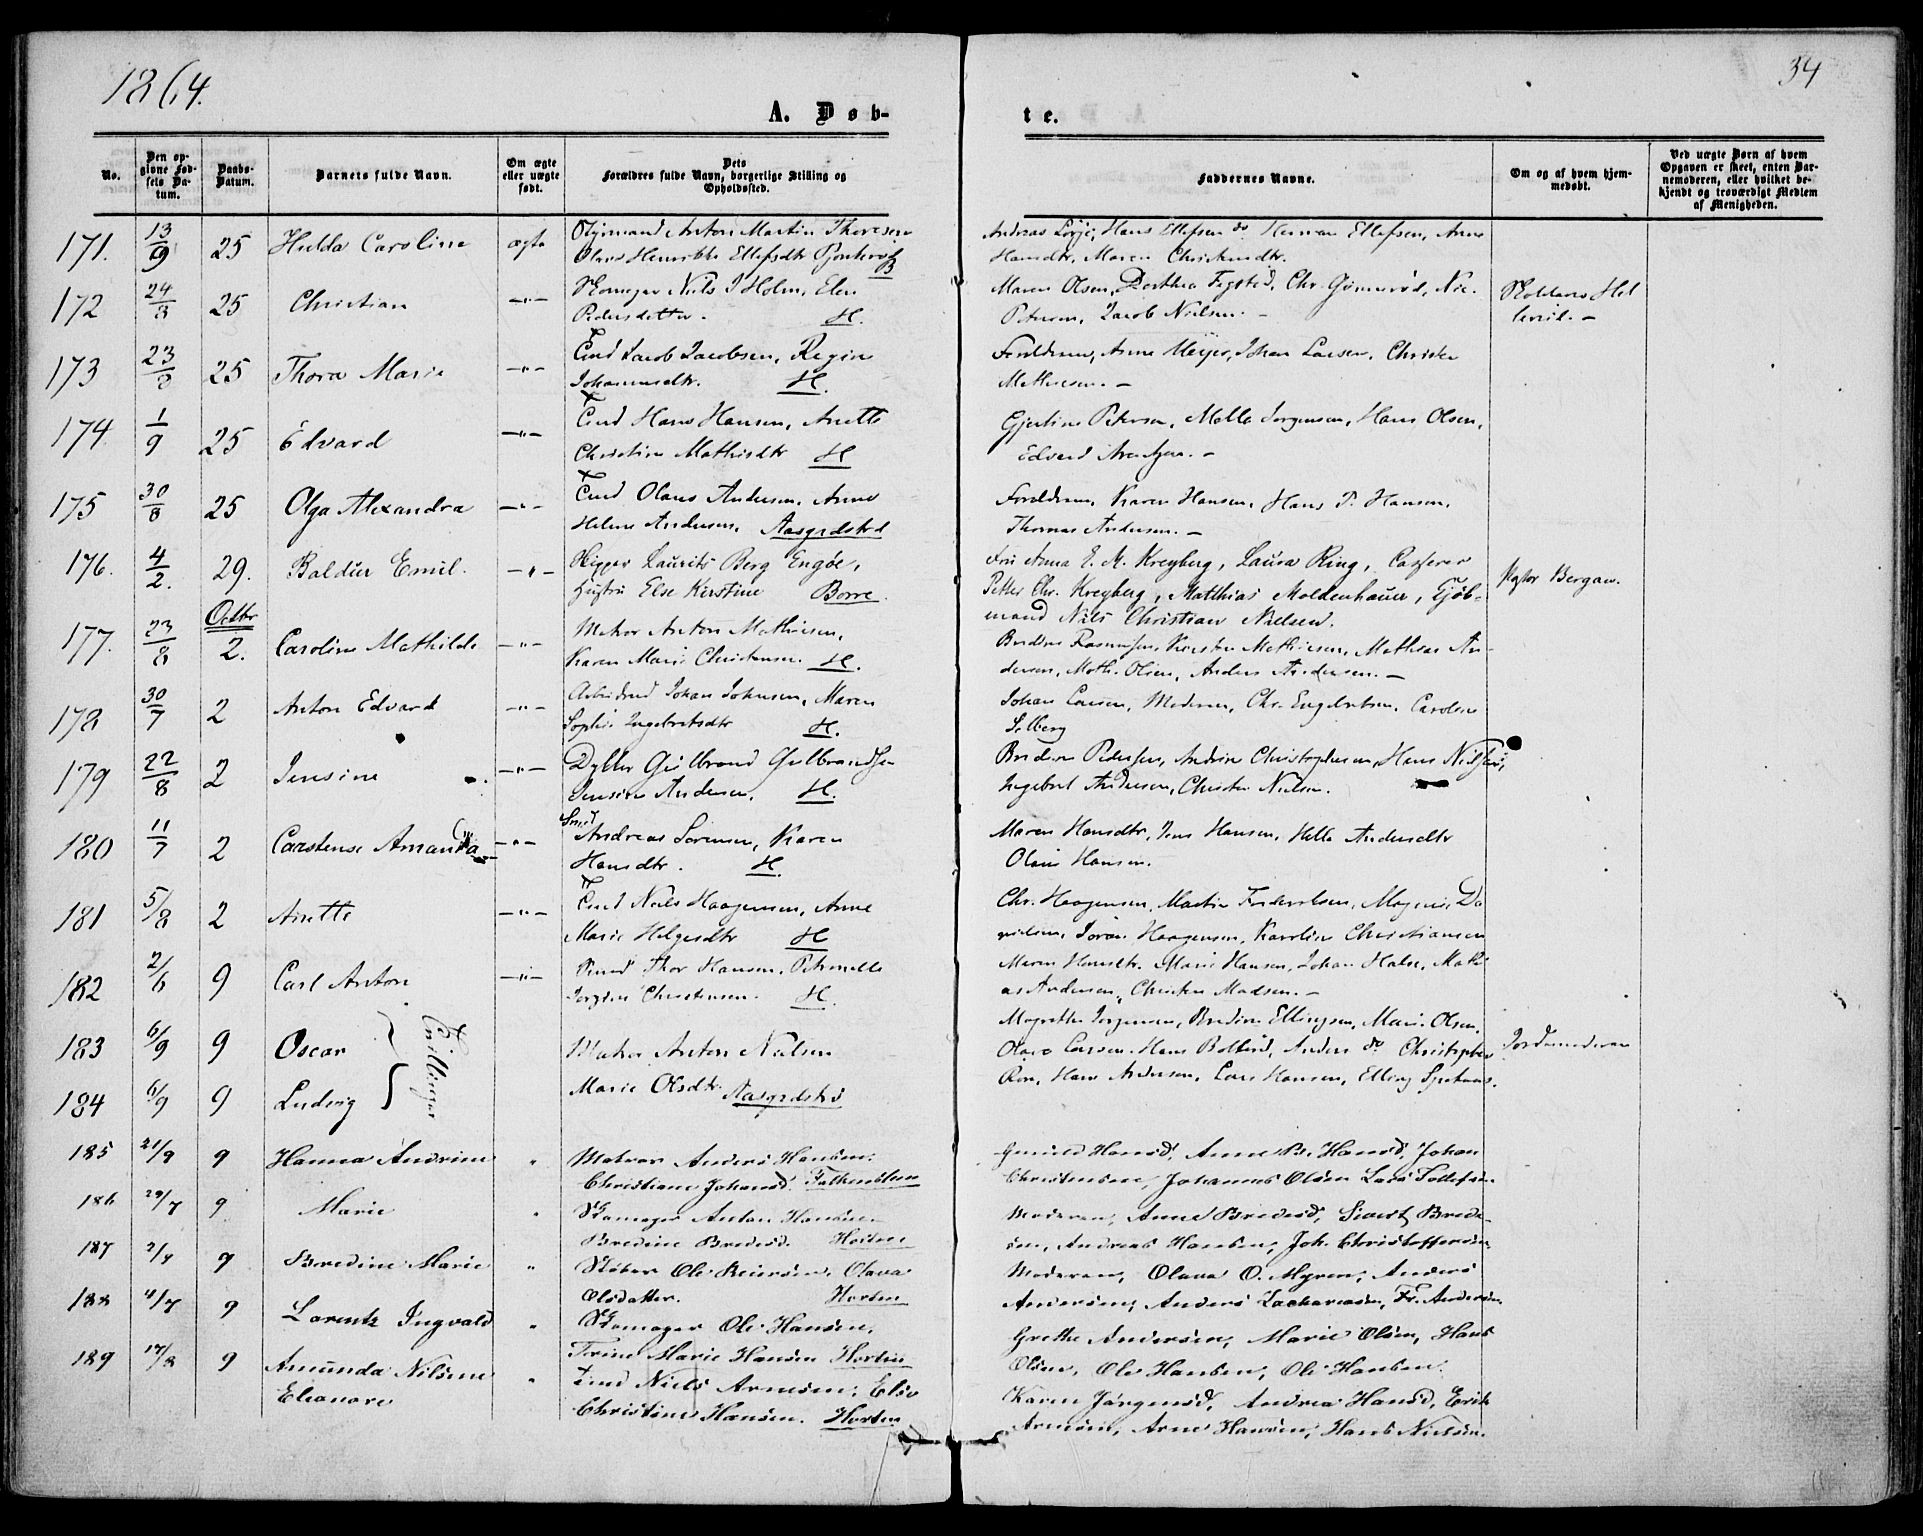 1864.
34
A. Døb-
te.
No.
Den op-
givne Fød-
sels Da-
tum.
Daabs-
Datum.
Barnets fulde Navn.
Om ægte
eller uægte
født.
Dets
Forældres fulde Navn, borgerlige Stilling og
Opholdssted.
Faddernes Navne.
Om og af hvem hjem-
medøbt.
Ved uægte Børn af hvem
Opgaven er skeet, enten Bar-
nemoderen, eller hvilket be-
kjendt og troværdigt Medlem
af Menigheden.
171. 13/9 25 Hulda Caroline ægte Styrmand Anton Martin Thoresen
Henrikke Ellefsdtr
B
Hans Ellefsen do Herman Ellefsen, Anne
Hansdtr, Maren
172 24/8 25 Christian -"- Skomager Niels J Holm, Elen
Pedersdatter. H.
Maren Olsen, Dorthea
Petersen, Jacob Nielsen. -
173 23/8 25 Thora Marie -"- Tmd Jacob Jacobsen, Regine
Johannesdtr. H.
Forældrene, Anne Meyer, Johan Larsen, Christen
Mathiesen. -
174 1/9 25 Edvard -"- Tmd Hans Hansen, Anette
Christine Mathisdtr H
Gjertine Petersen, Malla Jorgensen, Hans Olsen,
Edvard
175 30/8 25 Olga Alexandra -"- Tmd Olaus Andersen, Anne
Helene Andersen, Aasgrdstrd
Forældrene, Karen Hansen, Hans P. Hansen,
Thomas Andersen. -
176. 4/2. 29. Baldur Emil. -"- Skipper Laurits Berg Engøe,
Hustru Else Kirstine Borre.
Fru Anna E. M. Kreyberg, Laura Ring, Casserer
Petter Chr. Kreyberg, Matthias Moldenhauer, Kjøb-
mand Nils Christian Nielsen.
Pastor Bergan.
Octbr
177. 23/8 2. Caroline Mathilde -"- Matros Anton Mathiesen,
Karen Marie Christensen. H.
Bredine Rasmussen, Kirstine Mathiesen, Mathias An-
dersen, Math. Olsen, Anders Andersen. -
178 30/7 2 Anton Edvard -"- Arbeidsmd Johan Johnsen, Maren
Sophie Ingebretsdtr H.
Johan Larsen, Moderen, Chr. Engebretsen, Caroline
Solberg
179 22/8 2 Jensine -"- Gulbrand Gulbrandsen
Jensine Andersen. H.
Bredine Pedersen, Andrine Christophersen, Hans Nielsen,
Ingebret Andersen, Christen Nielsen.
180 11/7 2 Carstense Amanda -"- Smed
Andreas Sørensen, Karen
Hansdtr. H.
Maren Hansdtr, Jens Hansen, Helle Andersdtr
Olaus Hansen.
181 5/8 2 Anette -"- Tmd Niels Haagensen, Anne
Marie Helgesdtr H
Chr. Haagensen, Martin
Haagensen, Karoline Christiansen
182 2/6 9 Carl Anton -"- Thor Hansen, Petronelle
Christensen. H.
Maren Hansdtr. Marie Hansen, Johan Holm, Mathi-
as Andersen, Christen Madsen. -
183 6/9 9 Oscar
Tvillinger
Matros Anton Nielsen
Magrethe Jorgensen, Bredine Ellingsen, Marie Olsen,
Olava Larsen, Hans Anders do Christopher
Jordemoderen
184 6/9 9 Ludvig
Marie Olsdtr. Aasgrdstrd
Hans Andersen, Lars Hansen, Elling
185 21/9 9 Hanna Andrine " Matros Anders Hansen.
Christiane Johansd. Falkensteen
Gunild Hansd, Anne Hansd, Johan
Christensen, Johannes Olsen Lars Tollefsen
186 29/7 9 Marie " Skomager Anton Hansen
Bredine Bredesd. Horten
Moderen, Anne Bredesd, Sivert Brede-
sen, Andreas Hansen, Joh. Christoffersen
187 9 Bredine Marie " Støber Ole Reiersen, Olava
Olsdatter. Horten
Moderen, Olava O. Myren, Anders
Andersen, Anders Zachariasen, Fr. Andersen
188 4/7 9 Lorentz Ingvald " Skomager Ole Hansen,
Trine Marie Hansen Horten
Grethe Andersen, Marie Olsen, Hans
Olsen, Ole Hansen, Ole Hansen.
189 17/8 9 Amunda Nilsine
Eleanore " Tmd Niels Arnesen, Else
Christine Hansen. Horten
Karen Jørgensd, Andrea Hansd, Erik
Arnesen, Arne Hansen, Hans Nielsen.